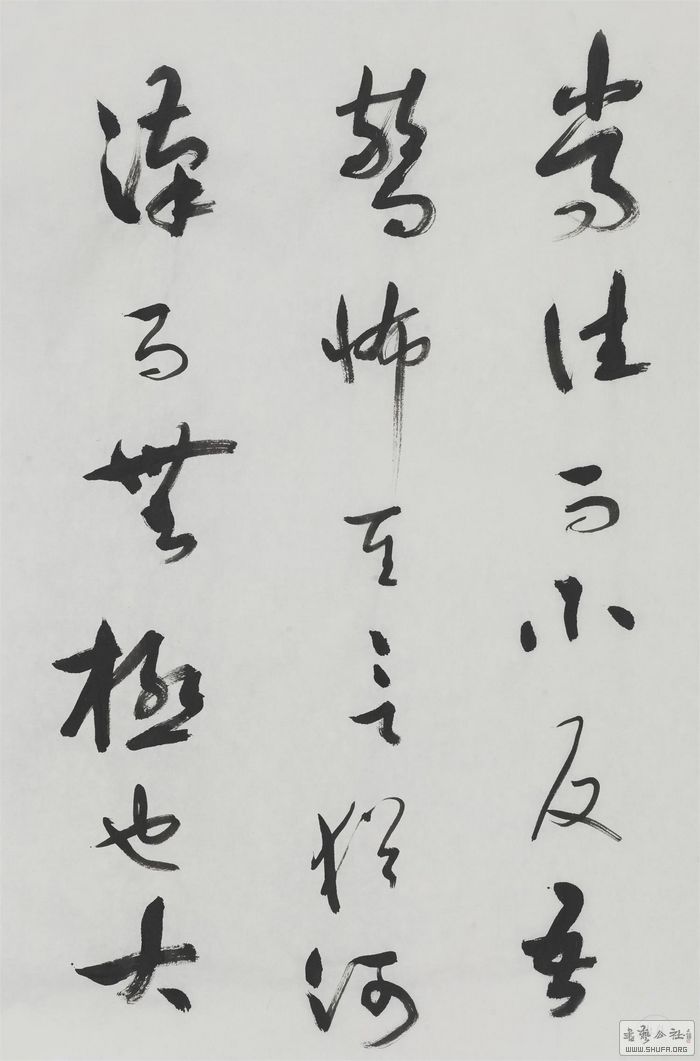 當往而不反吾
驚怖其言猶河
漢而無極也大
書藝公社
WWW.SHUFA.ORG